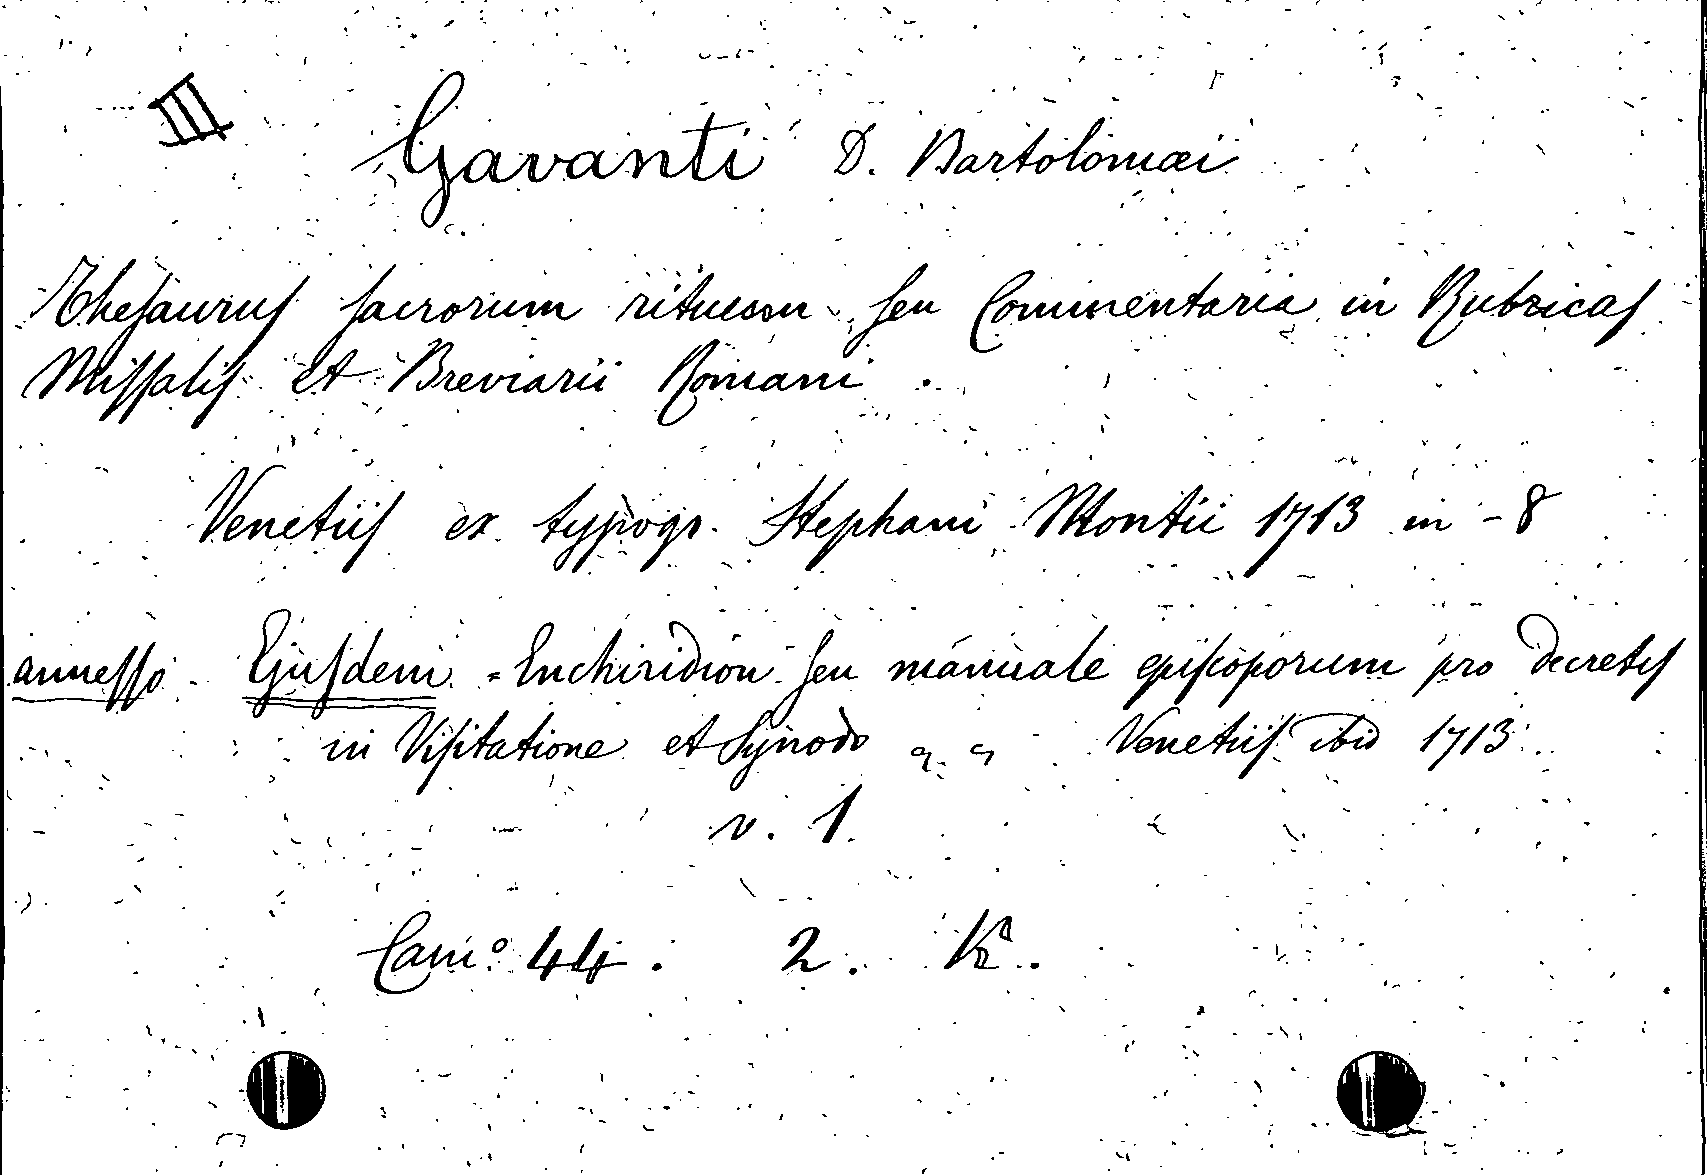 III
Gavanti D. Bartolomæi
Thesaurus sacrorum rituum seu Commentaria in Rubricas
Missalis et Breviarii Romani .
Venetiis ex typogr. Stephani Montii 1713 in - 8
annesso - Ejusdem - Enchiridion seu manuale episcoporum pro decretis
in Visitatione et Synodo Venetiis ibid 1713
v. 1.
Cam.º 44. 2. K.